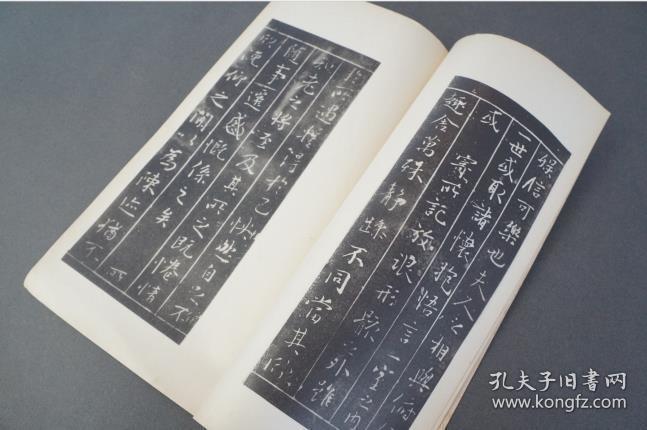 娛信可樂也夫人之相與俯
一世或取諸懷抱悟言一室之内
或寄所託放浪形骸之外雖
趣舍萬殊靜躁不同當其欣
所遇蹔得於己怏然自足不
知老之將至及其所之既惓情
隨事遷感慨係之矣所
欣俛仰之閒以為陳迹猶不
孔夫子旧书网
www.kongfz.com